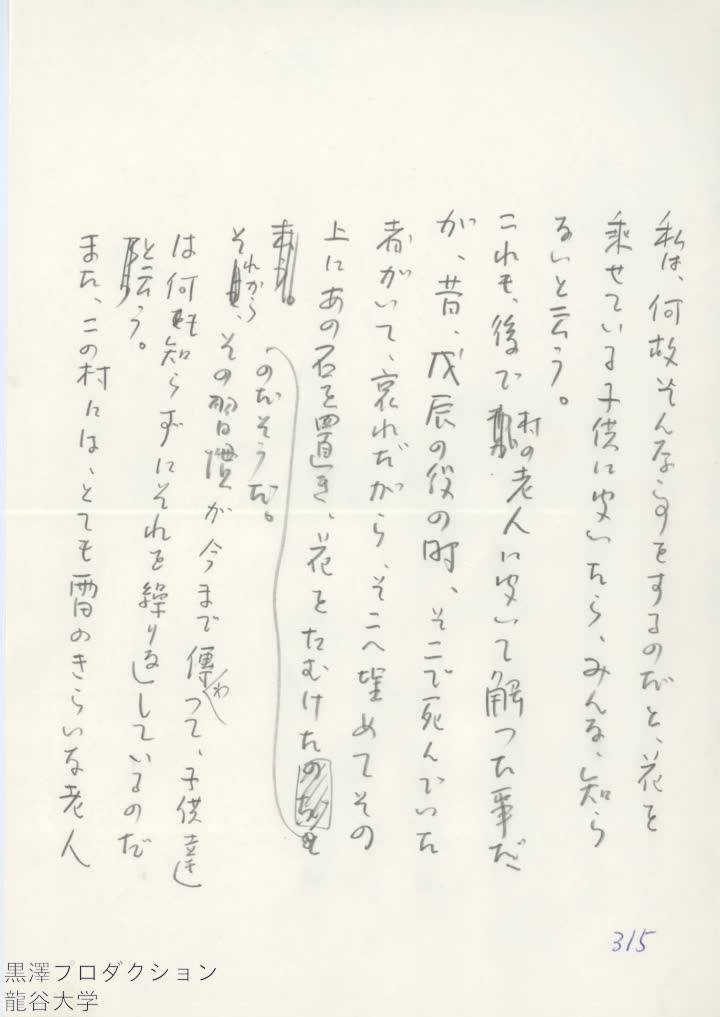 私は、何故そんな事をするのだと、花を
乗せている子供に聞いたら、みんな、知ら
ないと云う。
これも、後で村の老人に聞いて解った事だ
が、昔、戊辰の役の時、そこで死んでいた
者がいて、哀れだから、そこへ埋めてその
上にあの石を置き、花をたむけた
のだそうだ。
それから、その習慣が今まで傳わって、子供達
は何も知らずにそれを繰り返しているのだ
と云う。
また、この村には、とても雷のきらいな老人
315
黒澤プロダクション
龍谷大学